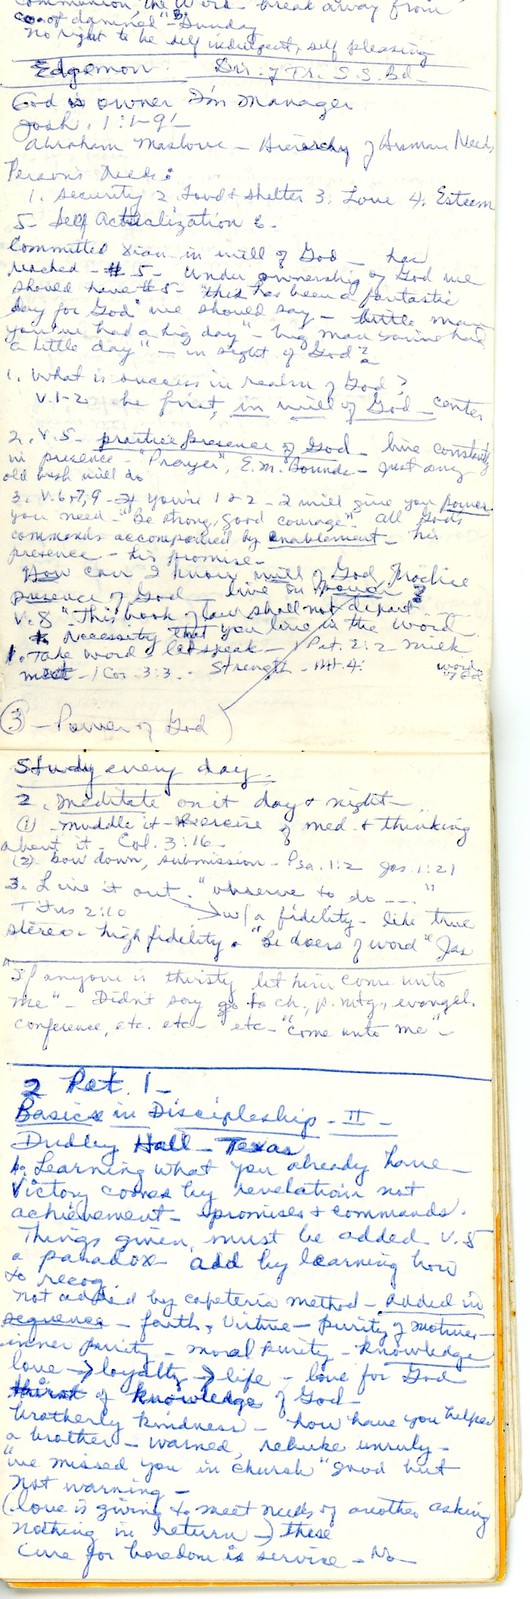 communion, the Word - break away from
"Sunday
no right to be self indulgent, self pleasing
Edgemon Dir. of Tr. S.S. Bd.
God is owner I'm Manager
Josh. 1:1-9
Abraham Maslow - Hierarchy of Human Needs
Person's Needs:
1. Security 2. Food & Shelter 3. Love 4. Esteem
5 - Self Actualization 6.
Committed Xian in will of God - has
reached - #5 - Under ownership of God we
should have #5 - "this has been a fantastic
day for God" we should say - little man
you've had a big day" - big man you've had
a little day" - in sight of God?
1. What is success in realm of God?
V. 1-2 - be first, in will of God - center
2. V. 5 - practice presence of God - live constantly
in presence - "Prayer", E.M. Bounds - just any
old bush will do
3. V. 6, 7, 9 - If you're 1 & 2 - I will give you power
you need - "Be strong, good courage". All God's
commands accompanied by enablement - his
presence - his promise -
How can I know will of God, Practice
presence of God - live on power?
V. 8 "This book of law shall not depart ...
necessity that you live in the Word
1. Take word & let speak - 1 Pet. 2:2 milk
meat - 1 Cor. 3:3 - Strength - Mt. 4: word
③ - Power of God
Study every day.
2. Meditate on it day & night -
(1) muddle it - Exercise of med. & thinking
about it - Col. 3:16 -
(2) bow down, submission - Psa. 1:2 Jas 1:21
3. Live it out. "observe to do --- "
Titus 2:10 → w/a fidelity - like true
stereo - high fidelity. "Be doers of word" Jas
"If anyone is thirsty let him come unto
me" - Didn't say go to ch., p. mtg., evangel.
conference, etc. etc - etc - "come unto me" -
2 Pet. 1 -
Basics in Discipleship - II -
Dudley Hall - Texas
Learning what you already have -
Victory comes by revelation not
achievement - promises & commands.
Things given, must be added V. 5
a paradox - add by learning how
to recog.
not added by cafeteria method - added in
sequence - faith, Virtue - purity of motives -
inner purity - moral purity - knowledge
love → loyalty → life - love for God
thirst of knowledge of God -
brotherly kindness - how have you helped
a brother - warned, rebuke unruly -
"we missed you in church" good but
not warning -
(love is giving to meet needs of another asking
nothing in return → these
Cure for boredom is service - No -